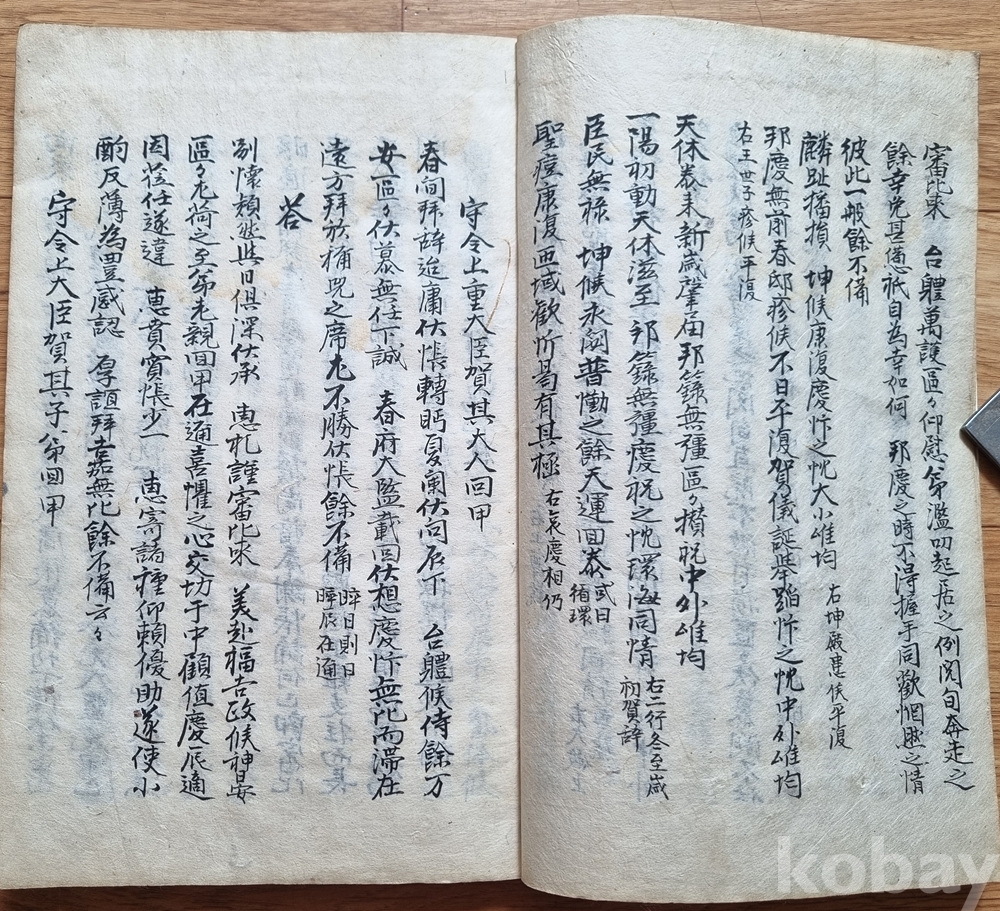 審比來 台體萬護區々仰慰弟濫叨起居之例閱旬奔走之
餘幸免甚憊祗自為幸如何 邦慶之時不得握手同歡悃悶之情
彼此一般餘不備
麟趾播損 坤候康復慶忭之忱大小惟均 右坤殿患候平復
邦慶無前春邸疹候不日平復賀儀誕舉蹈忭之忱中外惟均
右王世子疹候平復
天休泰來新歲肇屆邦籙無彊區々攢祝中外惟均
一陽初動天休滋至 邦籙無彊慶祝之忱環海同情 右二行冬至歲初賀辭
臣民無祿 坤候永閟普慟之餘天運回泰 或曰循環
聖痘康復匝域歡忻曷有其極 右哀慶相仍
守令上重大臣賀其大人回甲
春間拜辭迨庸伏悵轉眄夏闌伏問辰下 台體候侍餘万
安區々伏慕無任下誠 春府大監載回伏想慶忭無比而滯在
遠方拜於桷咒之席尤不勝伏悵餘不備 晬日則曰晬辰在邇
答
別懷頗然與日俱深伏承 惠札謹審比來 美赴福吉政候神晏
區々尤荷之至弟老親回甲在邇喜懼之心交切于中顧值慶辰適
因蒞任遂違 惠賁實悵少一 惠寄諸種仰賴優助遂使小
酌反薄為豊感認 厚誼拜幸無比餘不備方々
守令上大臣賀其子弟回甲
kobay